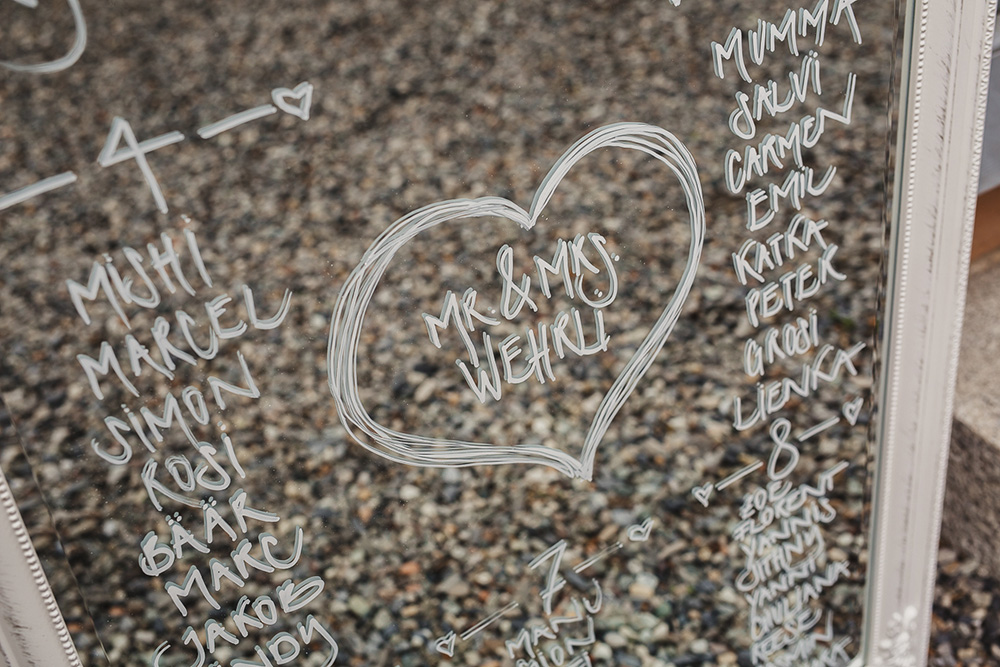 4
MISHI
MARCEL
SIMON
ROSI
BÄÄR
MARC
JAKOB
MR. & MRS.
WEHRLI
7
MANU
MUMMA
SALVI
CARMEN
EMIL
KATKA
PETER
GROSI
LIENKA
8
ZOE
FLORENT